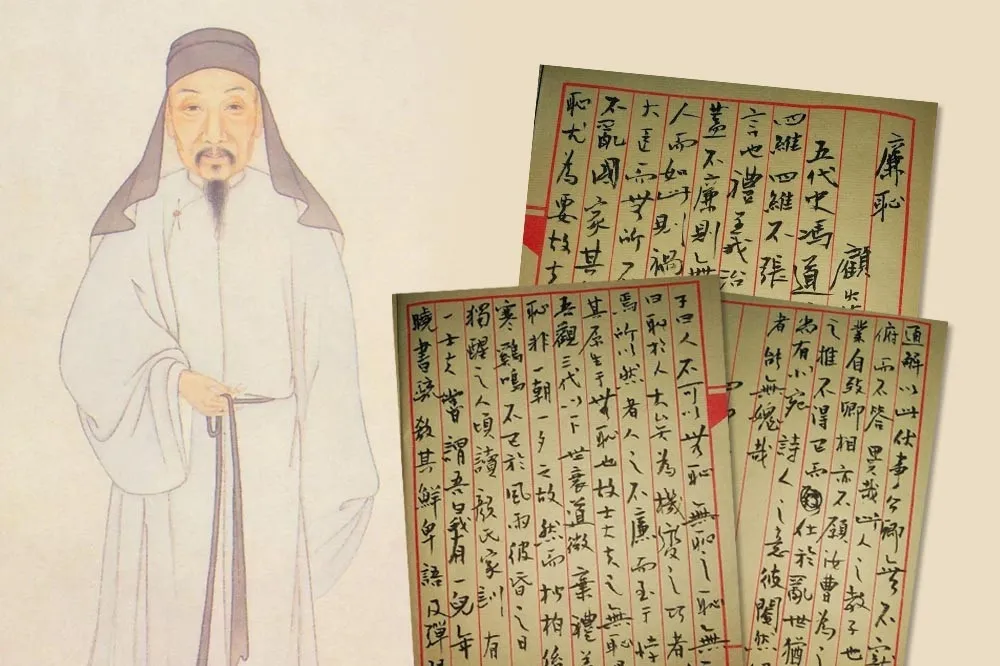 廉恥
顧炎
五代史馮道
四維四維不張
言也禮義治
蓋不廉則無
人而如此則禍
大臣而無所不
不亂國家其
恥尤為要故夫
子曰人不可以無恥無恥之恥無
曰恥於人大矣為機變之巧者
焉所以然者人之不廉而至于悖
其原生于無恥也故士大夫之無恥
吾觀三代以下世衰道微棄禮義
恥非一朝一夕之故然而松柏後
寒雞鳴不已於風雨彼昏之日
獨醒之人頃讀顏氏家訓有
一士夫嘗謂吾曰我有一兒年
曉書疏教其鮮卑語及彈
通解以此伏事公卿無不
俯而不答異哉此人之教子也
業自致卿相亦不願汝曹為之
之推不得已而仕於亂世猶
尚有小宛詩人之意彼閹然
者能無媿哉